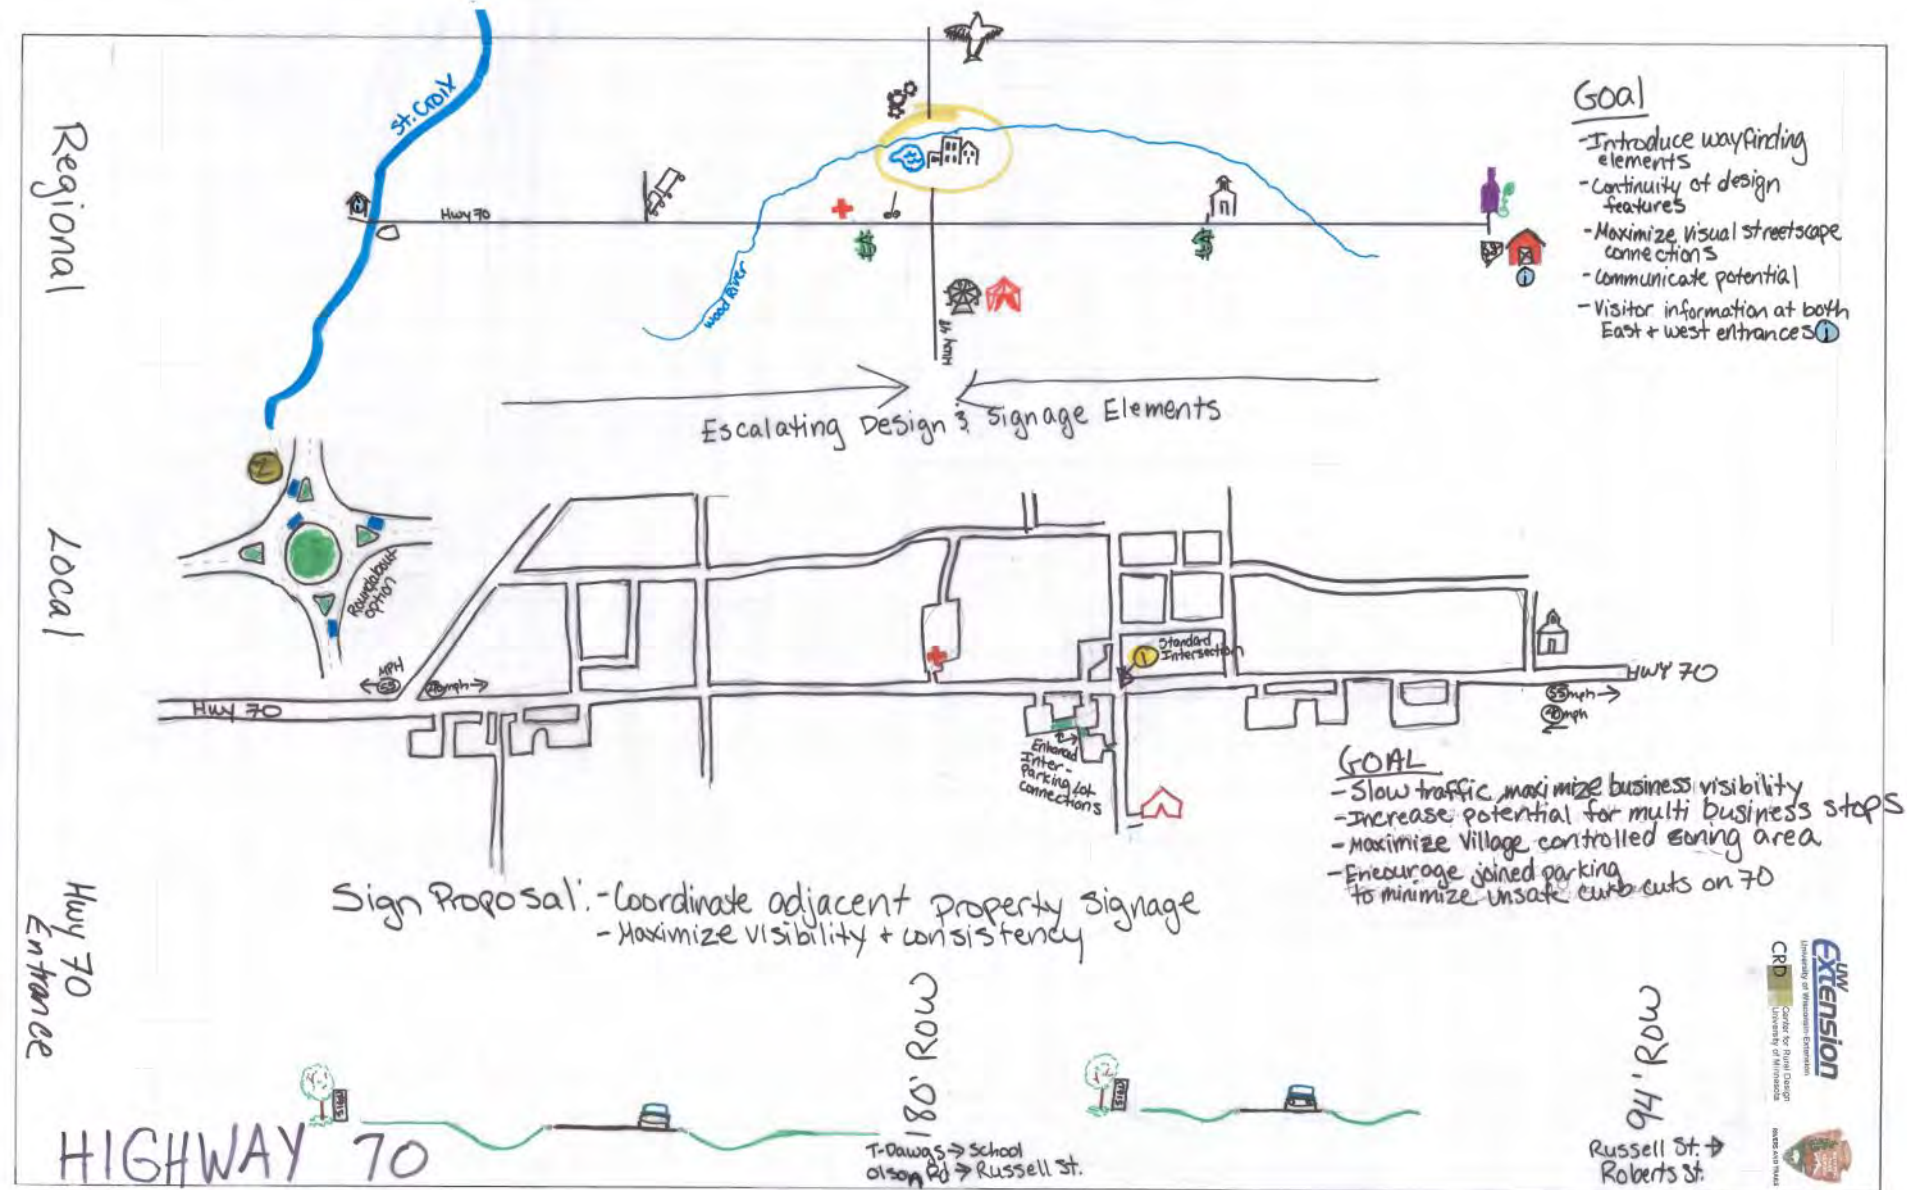 Regional
St. Croix
Hwy 70
Wood River
Hwy 48
i
Goal
-Introduce wayfinding
elements
-Continuity of design
features
-Maximize visual streetscape
connections
-communicate potential
-Visitor information at both
East + west entrances i
Escalating Design & Signage Elements
Local
2
Roundabout
option
MPH
55
mph
Hwy 70
1
Standard
Intersection
Enhanced
Inter-
Parking Lot
connections
HWY 70
55 mph
40 mph
GOAL
-Slow traffic, maximize business visibility
-Increase potential for multi business stops
-Maximize Village controlled zoning area
-Encourage joined parking
to minimize unsafe curb cuts on 70
Sign Proposal: -Coordinate adjacent property signage
-Maximize visibility + consistency
Hwy 70
Entrance
HIGHWAY 70
180' ROW
T-Dawgs → School
Olson Rd → Russell St.
94' ROW
Russell St. →
Roberts St.
UW
Extension
University of Wisconsin-Extension
CRD
Center for Rural Design
University of Minnesota
RIVERS AND TRAILS